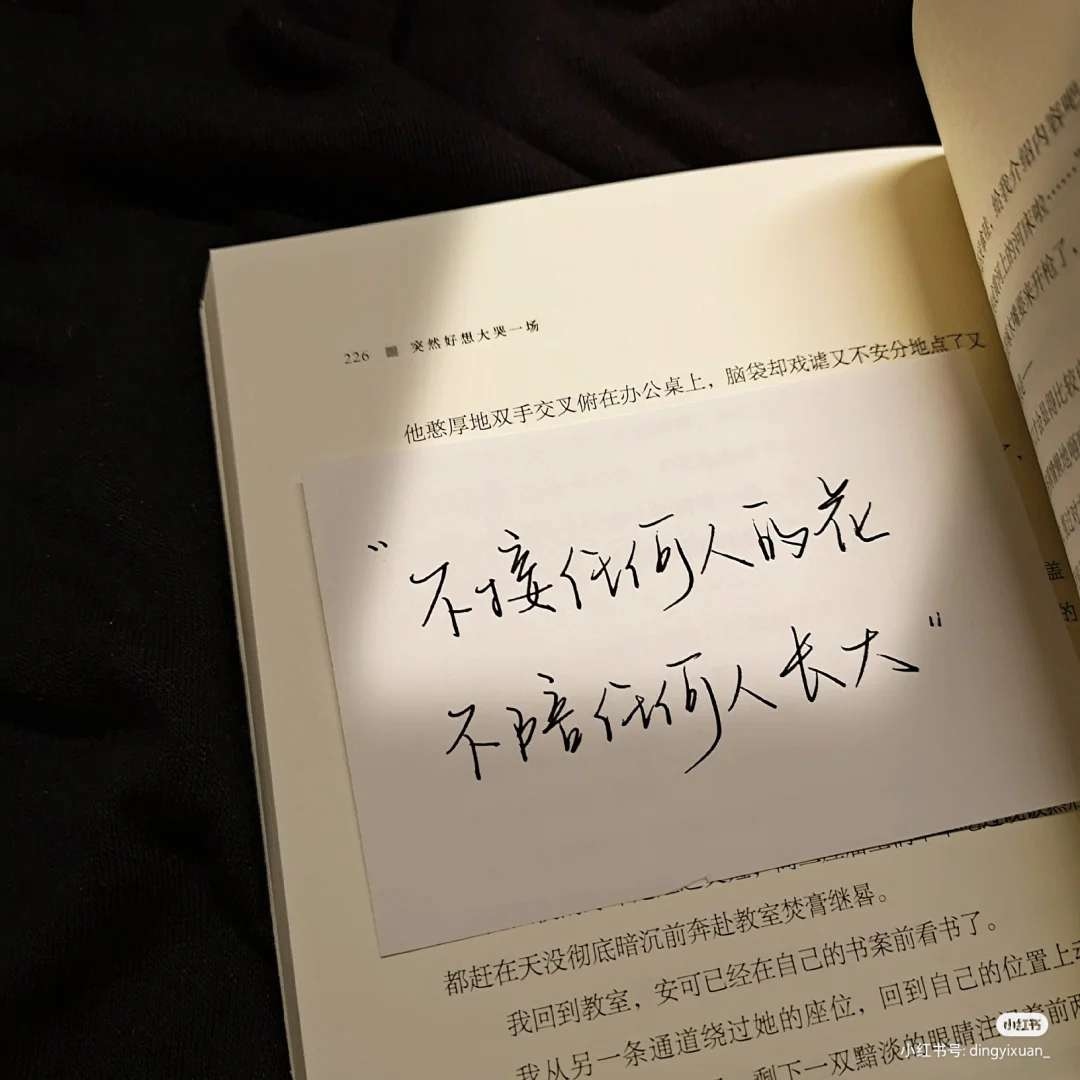 226 突然好想大哭一场
他憨厚地双手交叉俯在办公桌上，脑袋却戏谑又不安分地点了又
“不接任何人的花
不陪任何人长大”
都赶在天没彻底暗沉前奔赴教室焚膏继晷。
我回到教室，安可已经在自己的书案前看书了。
我从另一条通道绕过她的座位，回到自己的位置上
剩下一双黯淡的眼睛注
给我介绍内容吧
上的河床啦……
要来开枪了，
盖
的
小红书
小红书号: dingyixuan_